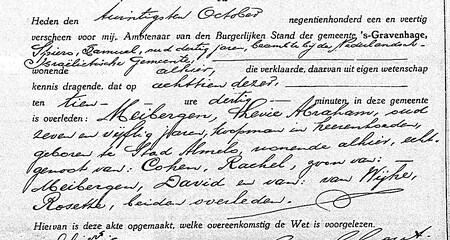 Heden den twintigsten October negentienhonderd een en veertig
verscheen voor mij, Ambtenaar van den Burgerlijken Stand der gemeente 's-Gravenhage,
Spiero, Samuel, oud dertig jaren, beambte bij de Nederlandsch-
Israëlietische Gemeente,
wonende alhier, die verklaarde, daarvan uit eigen wetenschap
kennis dragende, dat op achttien dezer,
ten tien ure dertig minuten, in deze gemeente
is overleden: Meibergen, Levie Abraham, oud
zeven en vijftig jaren, koopman in heerenhoeden,
geboren te Stad Almelo, wonende alhier, echt-
genoot van: Cohen, Rachel, zoon van:
Meibergen, David en van: van Wijhe,
Rosette, beiden overleden.
Hiervan is deze akte opgemaakt, welke overeenkomstig de Wet is voorgelezen.